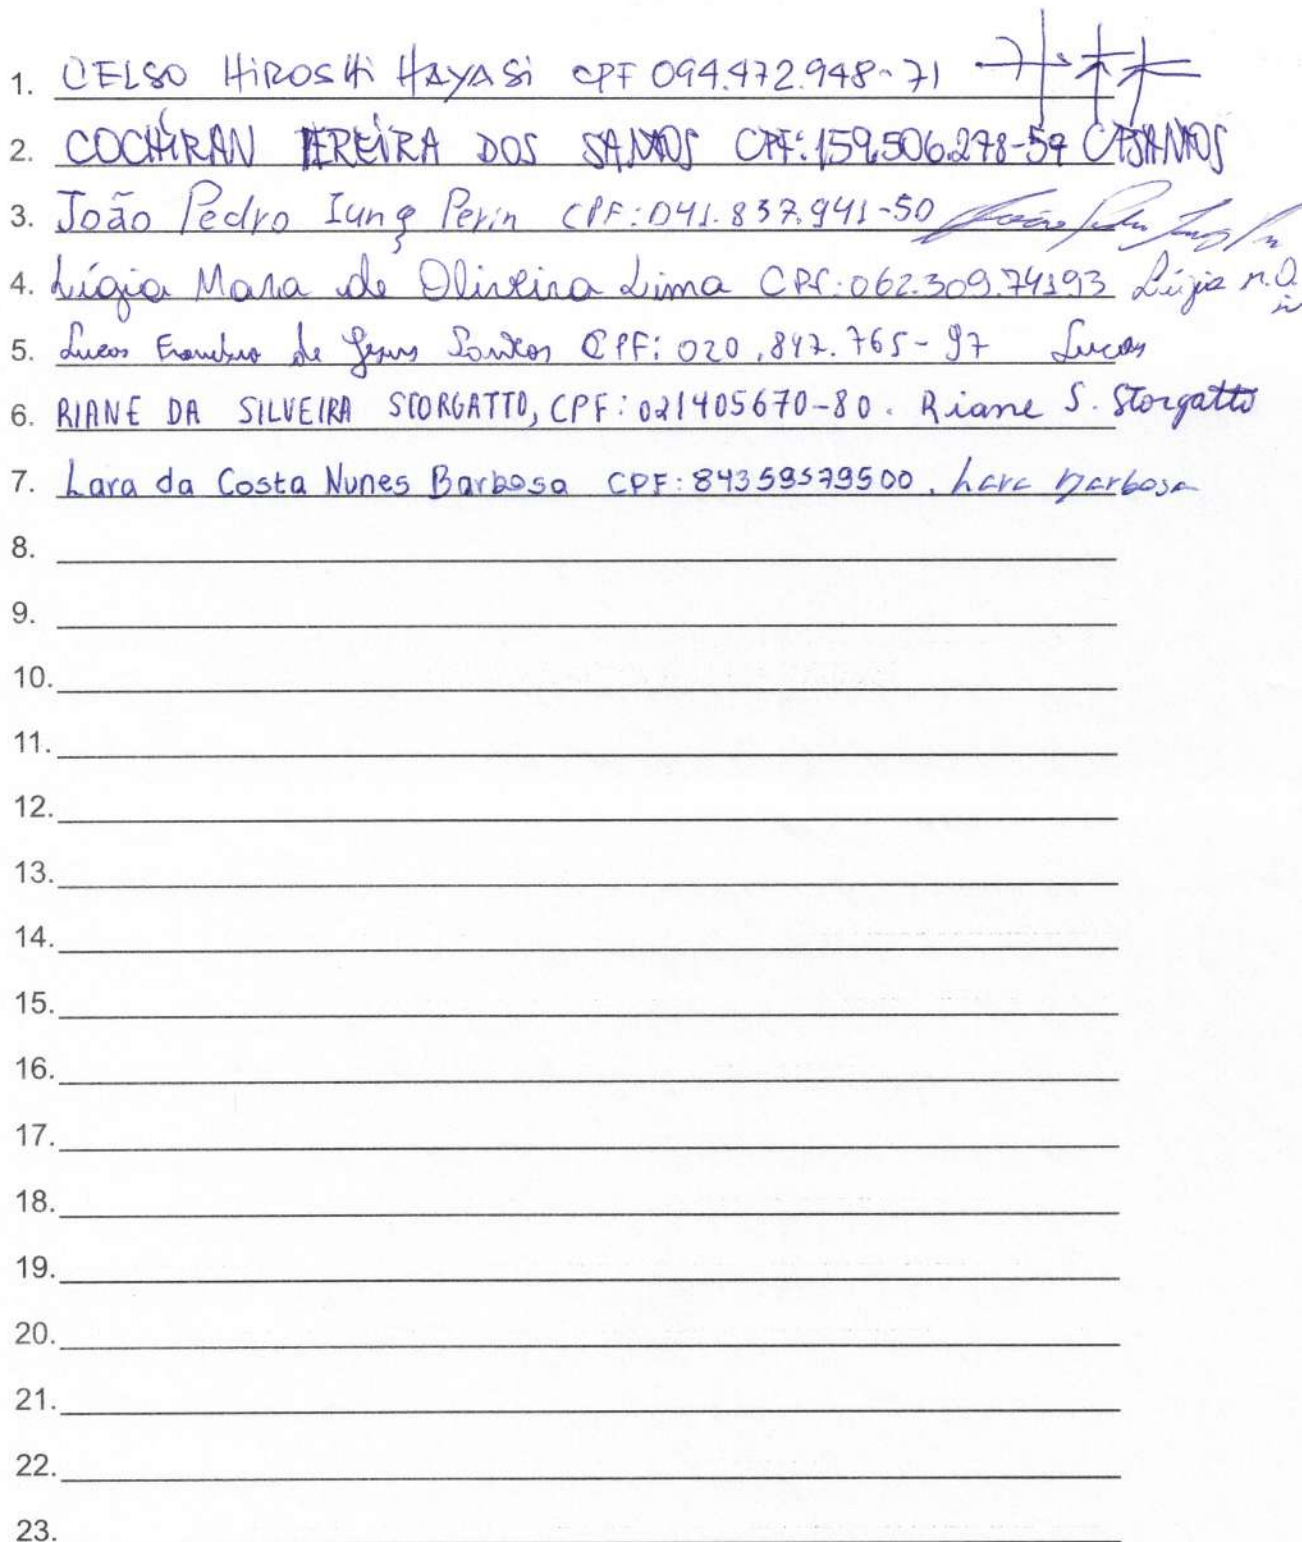 1. CELSO HIROSHI HAYASI CPF 094.472.948-71 小林
2. COCHIRAN PEREIRA DOS SANTOS CPF: 159.506.278-59 CPSANTOS
3. João Pedro Iung Perin CPF: 041.837.941-50
4. Lígia Mara de Oliveira Lima CPF: 062.309.74193 Lígia M.O.
5. Lucas de Jesus Santos CPF: 020.847.765-97 Lucas
6. RIANE DA SILVEIRA STORGATTO, CPF: 021405670-80. Riane S. Storgatto
7. Lara da Costa Nunes Barbosa CPF: 84359579500. Lara Barbosa
8.
9.
10.
11.
12.
13.
14.
15.
16.
17.
18.
19.
20.
21.
22.
23.